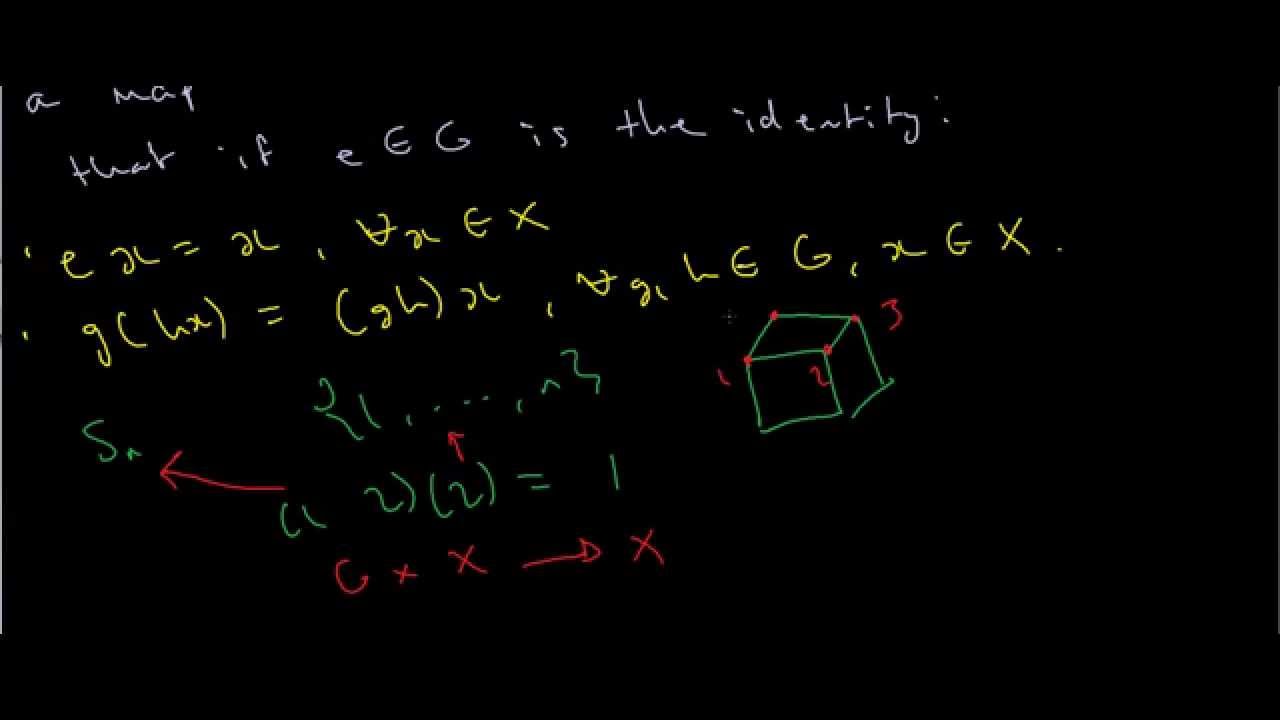 a map
that if e ∈ G is the identity:
· ex = x, ∀x ∈ X
· g(hx) = (gh)x, ∀g, h ∈ G, x ∈ X.
3
{1, ...., n}
1 2
Sₙ
(1 2)(2) = 1
G × X → X